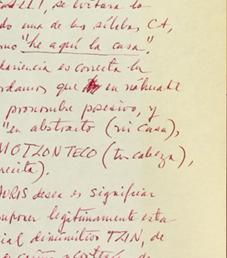 se evitara la
do una de las sílabas CA,
omo "he aquí la casa".
es correcta la
que en náhuatl
pronombre posesivo, y
"en abstracto (mi casa),
MOTZONTECO (tu cabeza),
cecita).
desea es significar
legítimamente esta
diminutivo TZIN, de